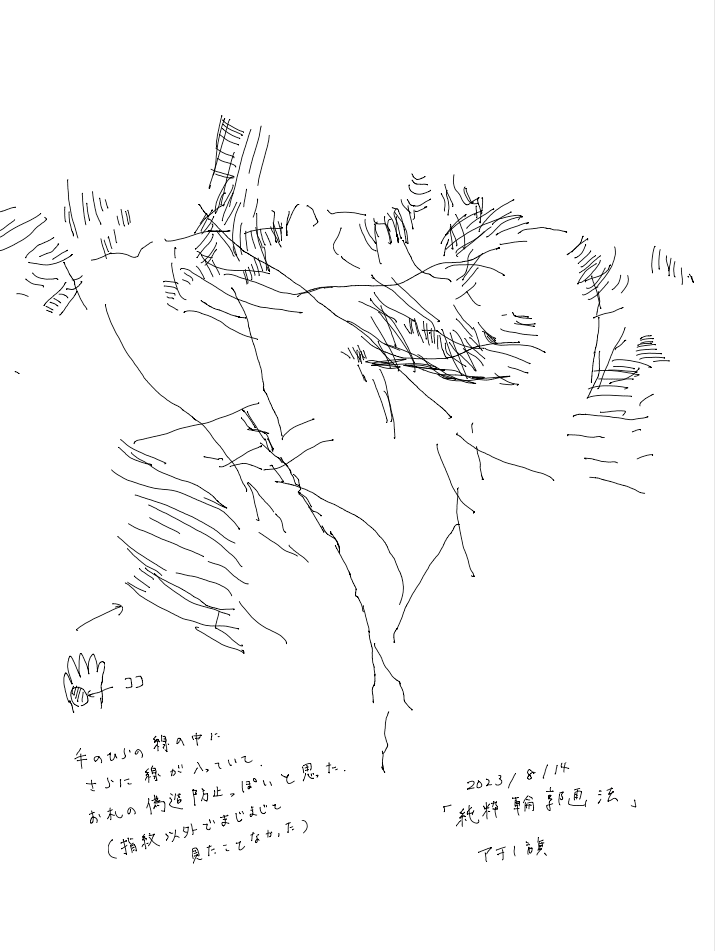 ココ
手のひらの線の中に
さらに線が入っていて、
お札の偽造防止っぽいと思った.
(指紋以外でまじまじと
見たことなかった)
2023/8/14
「純粋輪郭画法」